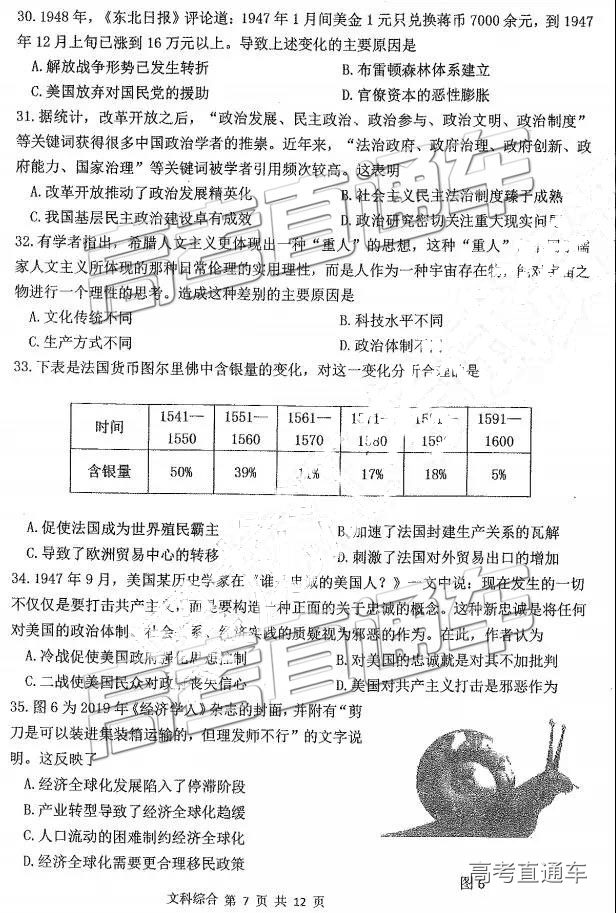 30.1948年，《东北日报》评论道：1947年1月间美金1元只兑换蒋币7000余元，到1947
年12月上旬已涨到16万元以上。导致上述变化的主要原因是
A.解放战争形势已发生转折
B.布雷顿森林体系建立
C.美国放弃对国民党的援助
D.官僚资本的恶性膨胀
31.据统计，改革开放之后，“政治发展、民主政治、政治参与、政治文明、政治制度”
等关键词获得很多中国政治学者的推崇。近年来，“法治政府、政府治理、政府创新、政
府能力、国家治理”等关键词被学者引用频次较高。这表明
A.改革开放推动了政治发展精英化
B.社会主义民主法治制度臻于成熟
C.我国基层民主政治建设卓有成效
D.政治研究密切关注重大现实问
32.有学者指出，希腊人文主义更体现出一种“重人”的思想，这种“重人”
家人文主义所体现的那种日常伦理的实用理性，而是人作为一种宇宙存在物，
物进行一个理性的思考。造成这种差别的主要原因是
A.文化传统不同
B.科技水平不同
C.生产方式不同
D.政治体制不
33.下表是法国货币图尔里佛中含银量的变化，对这一变化分析合理的是
时间 1541—1550 1551—1560 1561—1570 1580 1591—1600
含银量 50% 39% 17% 18% 5%
A.促使法国成为世界殖民霸主
B.加速了法国封建生产关系的瓦解
C.导致了欧洲贸易中心的转移
D.刺激了法国对外贸易出口的增加
34.1947年9月，美国某历史学家在《谁是忠诚的美国人？》一文中说：现在发生的一切
不仅仅是要打击共产主义，而是要构造一种正面的关于忠诚的概念。这种新忠诚是将任何
对美国的政治体制、社会关系、经济实践的质疑视为邪恶的作为。在此，作者认为
A.冷战促使美国政府强化思想控制
B.对美国的忠诚就是对其不加批判
C.二战使美国民众对政府丧失信心
D.美国对共产主义打击是邪恶作为
35.图6为2019年《经济学人》杂志的封面，并附有“剪
刀是可以装进集装箱运输的，但理发师不行”的文字说
明。这反映了
A.经济全球化发展陷入了停滞阶段
B.产业转型导致了经济全球化趋缓
C.人口流动的困难制约经济全球化
D.经济全球化需要更合理移民政策
图6
高考直通车
文科综合 第 7 页 共 12 页
高考直通车
高考直通车